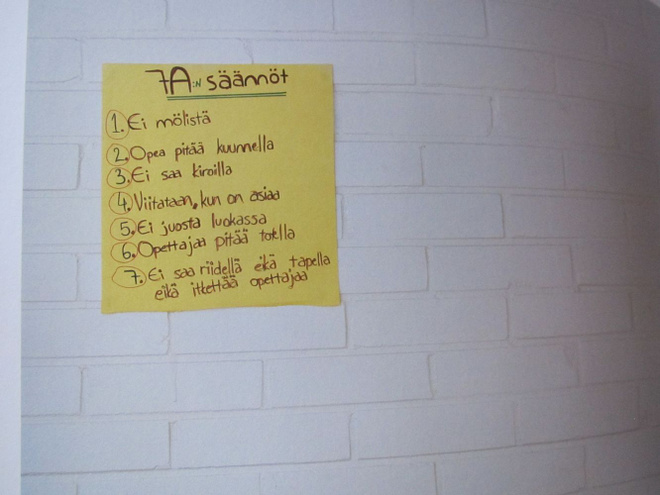 7A:N säännöt
1. Ei mölistä
2. Opea pitää kuunnella
3. Ei saa kiroilla
4. Viitataan, kun on asiaa
5. Ei juosta luokassa
6. Opettajaa pitää totella
7. Ei saa riidellä eikä tapella
eikä itkettää opettajaa